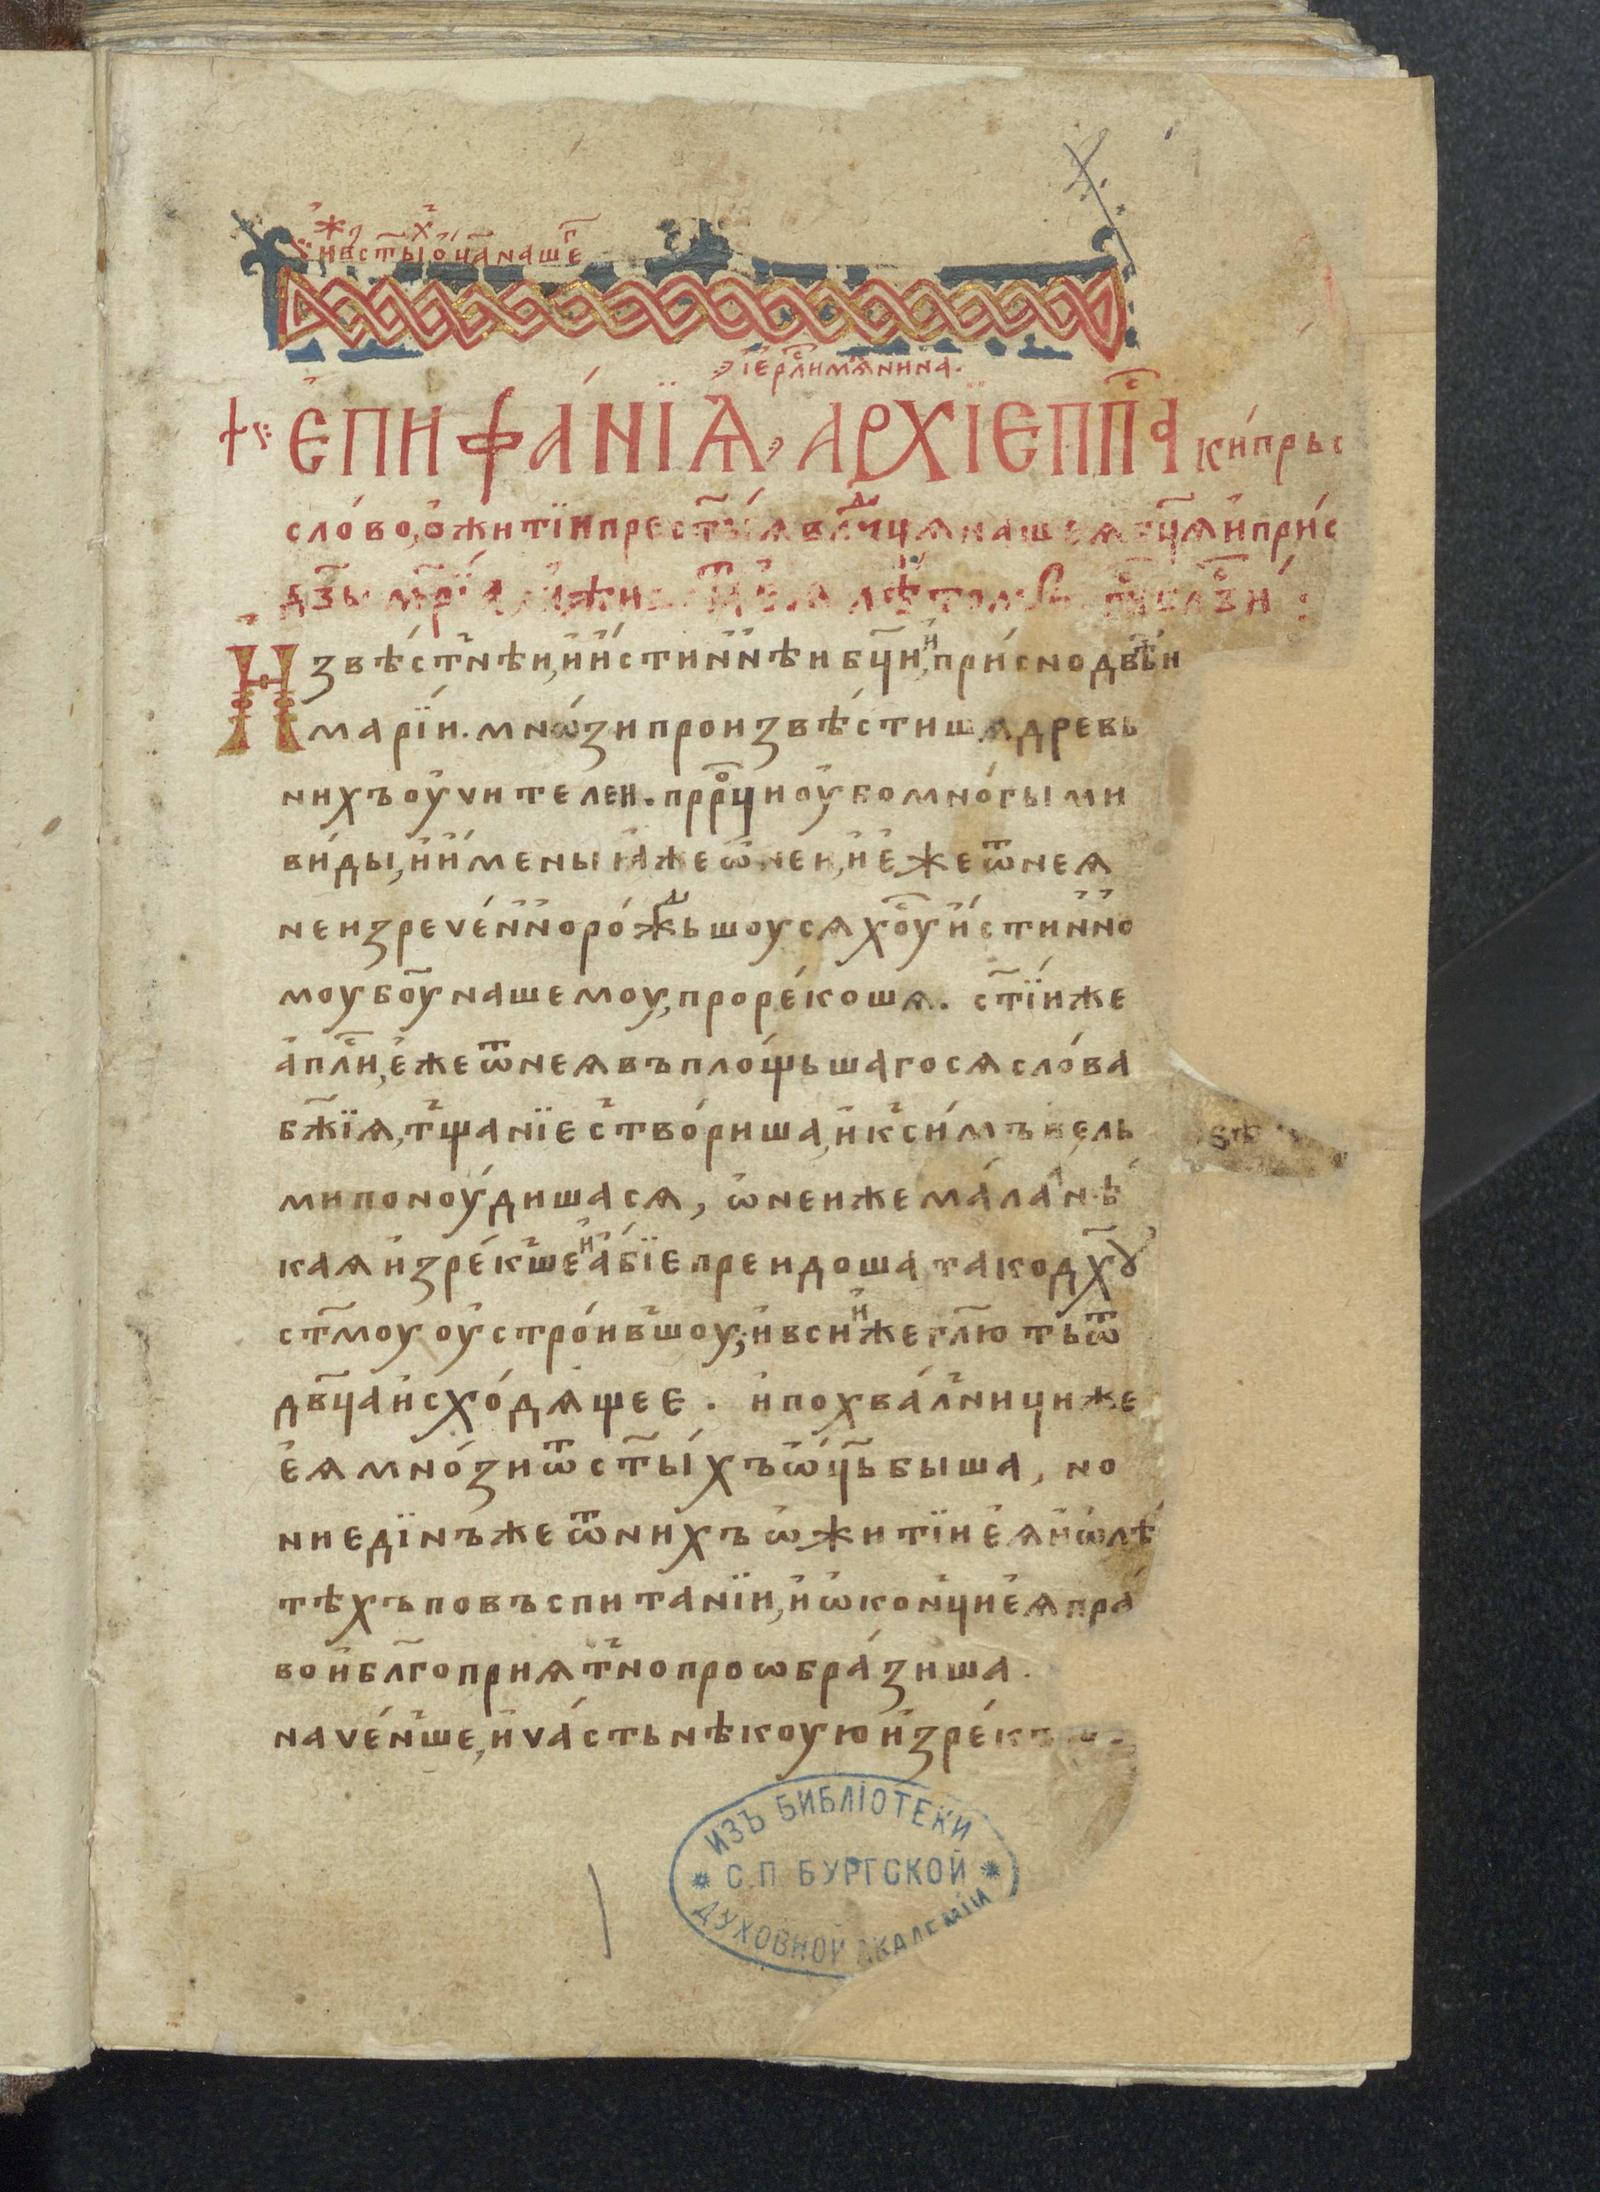 иже въ ст҃ы́хъ ѻ҆ц҃а нашег
іе҆рⷭ҇лимѧнина.
Е҆ПИФА́НЇѦ, АРХЇЕПП҃ⷭА ки́прьс
сло́во, о҆ житїи прест҃ы́ѧ влⷣчцѧ нашеѧ бц҃ѧ и҆ при́с
дв҃ы мр҃і́а
И҆звѣ́стнѣи, и҆ и҆́стиннѣи бц҃и, при́снодв҃ѣи
марі́и. мнѡ́зи произвѣ́стишѧ древь
нихъ оу҆чителеи. прⷪ҇рци оу҆бо мно́гыми
ви́ды, и҆ и҆́мены ꙗ҆же ѡ҆ неи, и҆ е҆же ѿ неѧ
неизрече́нно ро́жⷣьшоусѧ хⷭ҇оу и҆́стинно
моу бо҃у нашемоу, проре́кошѧ. ст҃і́и же
а҆плⷭ҇и, е҆же ѿ неѧ въпло́щьшагосѧ сло́ва
бж҃їѧ, тщанїе ство́риша, и҆ к си́мъ вель
ми поноу́дишасѧ, ѡ҆ неи же ма́ла нѣ́
каѧ и҆зре́кше и҆ а҆́бїе преидоша тако дх҃ꙋ
ст҃моу оу҆стро́ившоу, и҆ вси же гл҃ють ѿ
дв҃ца и҆схо́дѧщее. и҆ похва́лници же
е҆ѧ мно́зи ѿ ст҃ы́хъ ѡ҆ц҃ь быша, но
ни едїнъ же ѿ нихъ ѡ҆ житїи е҆ѧ и҆ ѡ҆ лѣ́
тѣхъ по въспитанїи, и҆ ѡ҆ концѝ е҆ѧ пра́
во и҆ бл҃гоприѧтно проѡбра́зиша.
наче́нше, и҆ ча́сть нѣкоую и҆зре́къ
ИЗЪ БИБЛІОТЕКИ
С.П.БУРГСКОЙ
ДУХОВНОЙ АКАДЕМІИ